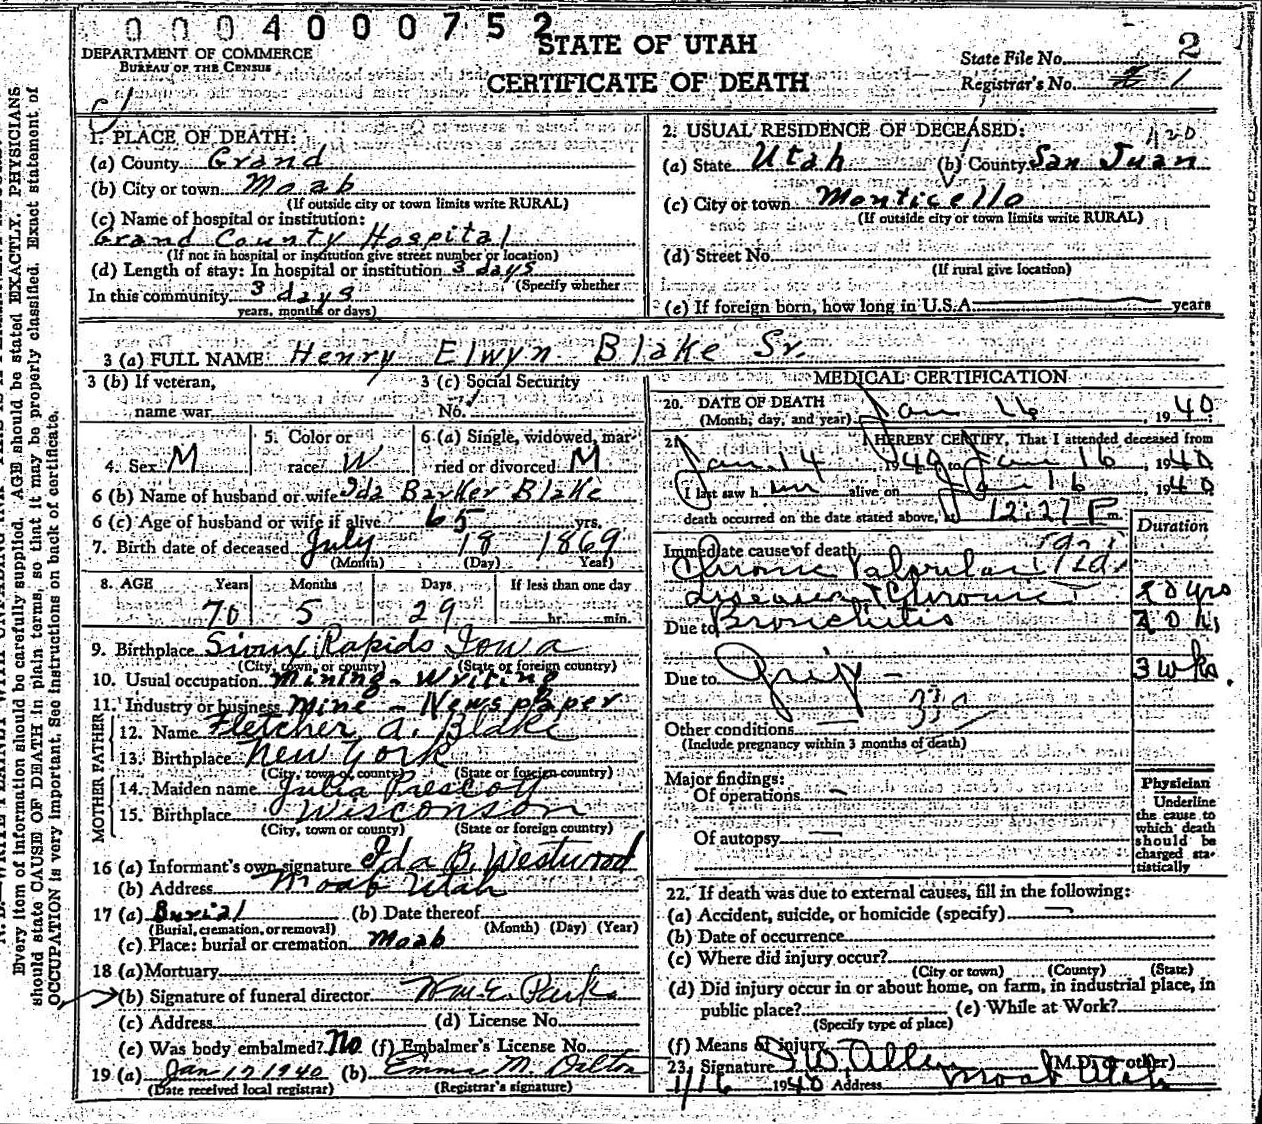 0004000752
STATE OF UTAH
CERTIFICATE OF DEATH
DEPARTMENT OF COMMERCE
BUREAU OF THE CENSUS
2
State File No.
Registrar's No. 1
1. PLACE OF DEATH:
(a) County Grand
(b) City or town Moab
(If outside city or town limits write RURAL)
(c) Name of hospital or institution:
Grand County Hospital
(If not in hospital or institution give street number or location)
(d) Length of stay: In hospital or institution 3 days
(Specify whether
In this community 3 days
years, months or days)
2. USUAL RESIDENCE OF DECEASED:
(a) State Utah (b) County San Juan
(c) City or town Monticello
(If outside city or town limits write RURAL)
(d) Street No.
(If rural give location)
(e) If foreign born, how long in U.S.A. years
3 (a) FULL NAME: Henry Elwyn Blake Sr.
3 (b) If veteran,
name war
3 (c) Social Security
No.
4. Sex M
5. Color or
race W
6 (a) Single, widowed, mar-
ried or divorced M
6 (b) Name of husband or wife Ida Barker Blake
6 (c) Age of husband or wife if alive 65 yrs.
7. Birth date of deceased July 18 1869
(Month) (Day) Year)
8. AGE Years Months Days If less than one day
70 5 29 hr. min.
9. Birthplace Sioux Rapids Iowa
(City, town, or county) (State or foreign country)
10. Usual occupation Mining - Writing
11. Industry or business Mine - Newspaper
FATHER
12. Name Fletcher A. Blake
13. Birthplace New York
(City, town or county) (State or foreign country)
MOTHER
14. Maiden name Julia Prescott
15. Birthplace Wisconson
(City, town or county) (State or foreign country)
16 (a) Informant's own signature Ida B. Westwood
(b) Address Moab Utah
17 (a) Burial (b) Date thereof
(Burial, cremation, or removal) (Month) (Day) (Year)
(c) Place: burial or cremation Moab
18 (a) Mortuary
(b) Signature of funeral director Wm. E. Parks
(c) Address (d) License No.
(e) Was body embalmed? No (f) Embalmer's License No.
19 (a) Jan 17 1940 (b) Emma M. Dalton
(Date received local registrar) (Registrar's signature)
MEDICAL CERTIFICATION
20. DATE OF DEATH
(Month, day, and year) Jan 16, 1940
21. I HEREBY CERTIFY, That I attended deceased from
Jan 14 1940 to Jan 16, 1940
I last saw him alive on Jan 16, 1940
death occurred on the date stated above, at 12:27 P m.
Duration
Immediate cause of death
Chronic Valvular
disease & Chronic
Due to Bronchitis
Due to Grip - 3 wks.
33a
Other conditions
(Include pregnancy within 3 months of death)
Major findings:
Of operations
Of autopsy
Physician
Underline
the cause to
which death
should be
charged sta-
tistically
22. If death was due to external causes, fill in the following:
(a) Accident, suicide, or homicide (specify)
(b) Date of occurrence
(c) Where did injury occur?
(City or town) (County) (State)
(d) Did injury occur in or about home, on farm, in industrial place, in
public place? (e) While at Work?
(Specify type of place)
(f) Means of injury
23. Signature I. W. Allen (M.D. or other)
1/16 1940 Address Moab Utah
Every item of information should be carefully supplied. AGE should be stated EXACTLY. PHYSICIANS
should state CAUSE OF DEATH in plain terms, so that it may be properly classified. Exact statement of
OCCUPATION is very important. See instructions on back of certificate.